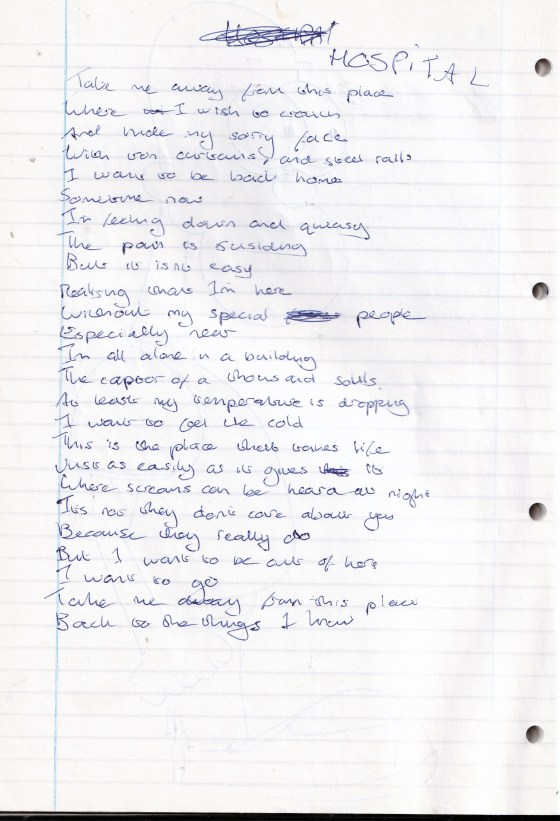 HOSPITAL
Take me away from this place
Where I wish to crouch
And hide my sorry face
With iron curtains, and steel rails
I want to be back home
Sometime now
I'm feeling down and queasy
The pain is subsiding
But it isn't easy
Realising that I'm here
Without my special people
Especially near
I'm all alone in a building
The captor of a thousand souls.
At least my temperature is dropping
I want to feel the cold
This is the place that takes life
Just as easily as it gives it
Where screams can be heard at night
It's not they don't care about you
Because they really do
But I want to be out of here
I want to go
Take me away from this place
Back to the things I knew